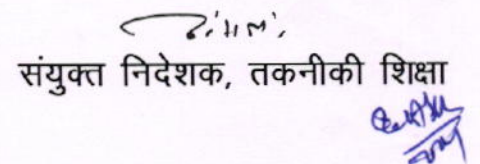 संयुक्त निदेशक, तकनीकी शिक्षा